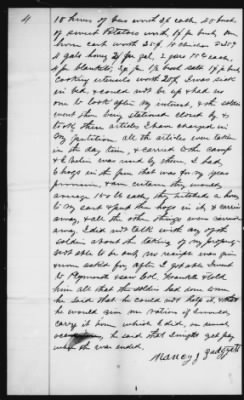 4
10 hives of bees worth 3$ each, 25 bush
of sweet Potatoes worth 1$ per bush, one
horn cart worth 25$. 10 chickens 2.50$
4 gals honey 2$ per gal, 2 geese 50¢ each,
2 blankets, 3$ per 1 bed quilt 1$ per bed,
Cooking utensils worth 20$. I was sick
in bed & could not be up & had no
one to look after my interest, & the soldiers
went there being stationed closed by &
took these articles I have charged in
my petition. all the articles were taken
in the day time, & carried to the Camp
& the was used by them. I had
6 hogs in the pen that was for my years
provision, & am certain they would
average 150 lb each, they hitched a horse
to my cart & put the hogs in it, & carried
away, & all the other things were carried
away. I did not talk with any of the
soldiers about the taking of my property
not able to be out, no receipt was given
& none asked for, after I got able I went
to Plymouth & saw Col. Frankle & told
him all that the soldiers had done & when
he said that he could not help it, & that
he would give me rations if I would
carry it home which I did, on several
he said that I might get pay
when the war ended,
Nancy J